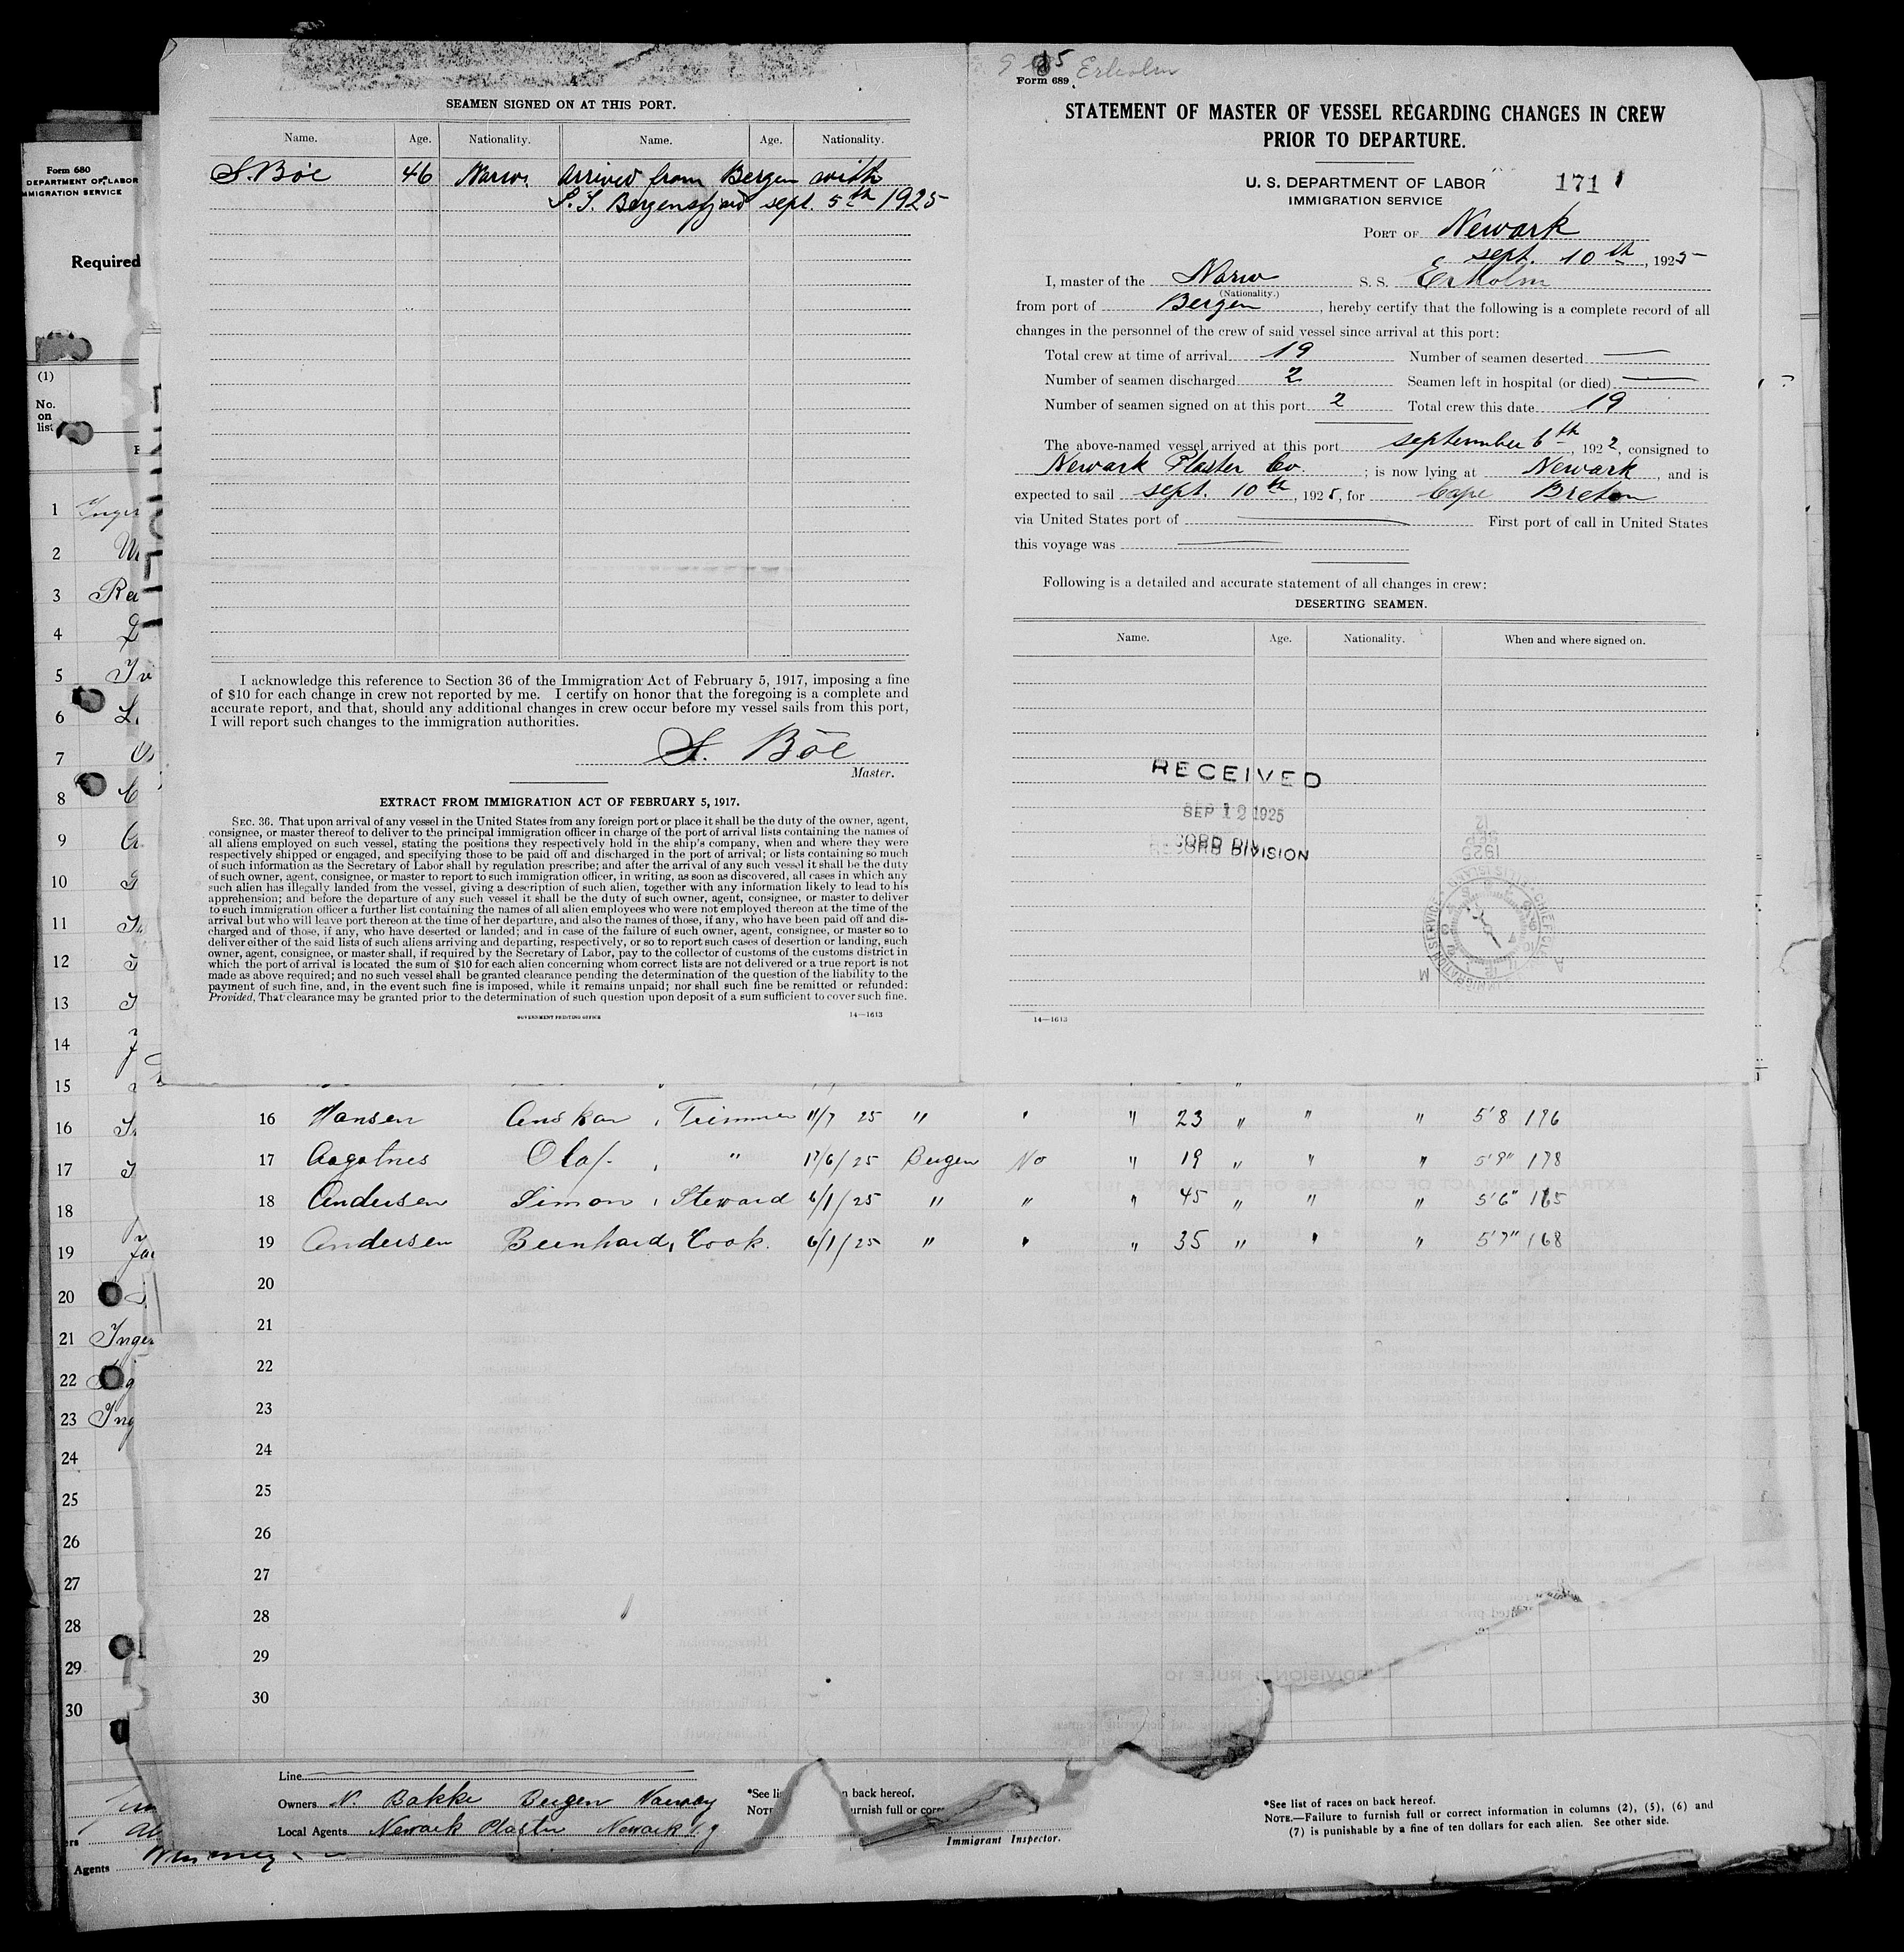 SEAMEN SIGNED ON AT THIS PORT.
Name. Age. Nationality. Name. Age. Nationality.
S. Böe 46 Norw. Arrived from Bergen with
S.S. Bergensfjord sept. 5th 1925
I acknowledge this reference to Section 36 of the Immigration Act of February 5, 1917, imposing a fine
of $10 for each change in crew not reported by me. I certify on honor that the foregoing is a complete and
accurate report, and that, should any additional changes in crew occur before my vessel sails from this port,
I will report such changes to the immigration authorities.
S. Böe
Master.
EXTRACT FROM IMMIGRATION ACT OF FEBRUARY 5, 1917.
SEC. 36. That upon arrival of any vessel in the United States from any foreign port or place it shall be the duty of the owner, agent,
consignee, or master thereof to deliver to the principal immigration officer in charge of the port of arrival lists containing the names of
all aliens employed on such vessel, stating the positions they respectively hold in the ship's company, when and where they were
respectively shipped or engaged, and specifying those to be paid off and discharged in the port of arrival; or lists containing so much
of such information as the Secretary of Labor shall by regulation prescribe; and after the arrival of any such vessel it shall be the duty
of such owner, agent, consignee, or master to report to such immigration officer, in writing, as soon as discovered, all cases in which any
such alien has illegally landed from the vessel, giving a description of such alien, together with any information likely to lead to his
apprehension; and before the departure of any such vessel it shall be the duty of such owner, agent, consignee, or master to deliver
to such immigration officer a further list containing the names of all alien employees who were not employed thereon at the time of the
arrival but who will leave port thereon at the time of her departure, and also the names of those, if any, who have been paid off and dis-
charged and of those, if any, who have deserted or landed; and in case of the failure of such owner, agent, consignee, or master so to
deliver either of the said lists of such aliens arriving and departing, respectively, or so to report such cases of desertion or landing, such
owner, agent, consignee, or master shall, if required by the Secretary of Labor, pay to the collector of customs of the customs district in
which the port of arrival is located the sum of $10 for each alien concerning whom correct lists are not delivered or a true report is not
made as above required; and no such vessel shall be granted clearance pending the determination of the question of the liability to the
payment of such fine, and, in the event such fine is imposed, while it remains unpaid; nor shall such fine be remitted or refunded:
Provided, That clearance may be granted prior to the determination of such question upon deposit of a sum sufficient to cover such fine.
GOVERNMENT PRINTING OFFICE 14—1613
Erholm
Form 689
STATEMENT OF MASTER OF VESSEL REGARDING CHANGES IN CREW
PRIOR TO DEPARTURE.
U. S. DEPARTMENT OF LABOR 171
IMMIGRATION SERVICE
PORT OF Newark
sept. 10th, 1925
I, master of the Norw S. S. Erholm
(Nationality.)
from port of Bergen, hereby certify that the following is a complete record of all
changes in the personnel of the crew of said vessel since arrival at this port:
Total crew at time of arrival 19 Number of seamen deserted —
Number of seamen discharged 2 Seamen left in hospital (or died) —
Number of seamen signed on at this port 2 Total crew this date 19
The above-named vessel arrived at this port september 6th, 1922, consigned to
Newark Plaster Co. ; is now lying at Newark, and is
expected to sail sept. 10th, 1925, for Cape Breton
via United States port of — First port of call in United States
this voyage was —
Following is a detailed and accurate statement of all changes in crew:
DESERTING SEAMEN.
Name. Age. Nationality. When and where signed on.
RECEIVED
SEP 12 1925
RECORD DIVISION
14—1613
Form 680
DEPARTMENT OF LABOR
IMMIGRATION SERVICE
Required
(1)
No.
on
list
1
2
3
4
5
6
7
8
9
10
11
12
13
14
15
16
17
18
19
20
21 Inger
22
23 Ing
24
25
26
27
28
29
30
Agents
16 Hansen Anskar, Trimmer 11/7 25 " " " 23 " " " 5'8 176
17 Aagotnes Olaf, " 17/6/25 Bergen No " 19 " " " 5'9" 178
18 Andersen Simon, Steward 6/1/25 " " " 45 " " " 5'6" 165
19 Andersen Bernhard, Cook. 6/1/25 " " " 35 " " " 5'7" 168
20
21
22
23
24
25
26
27
28
29
30
Line
Owners N. Bakke Bergen Norway
Local Agents Newark Plaster Newark
on back hereof.
Immigrant Inspector.
*See list of races on back hereof.
NOTE.—Failure to furnish full or correct information in columns (2), (5), (6) and
(7) is punishable by a fine of ten dollars for each alien. See other side.